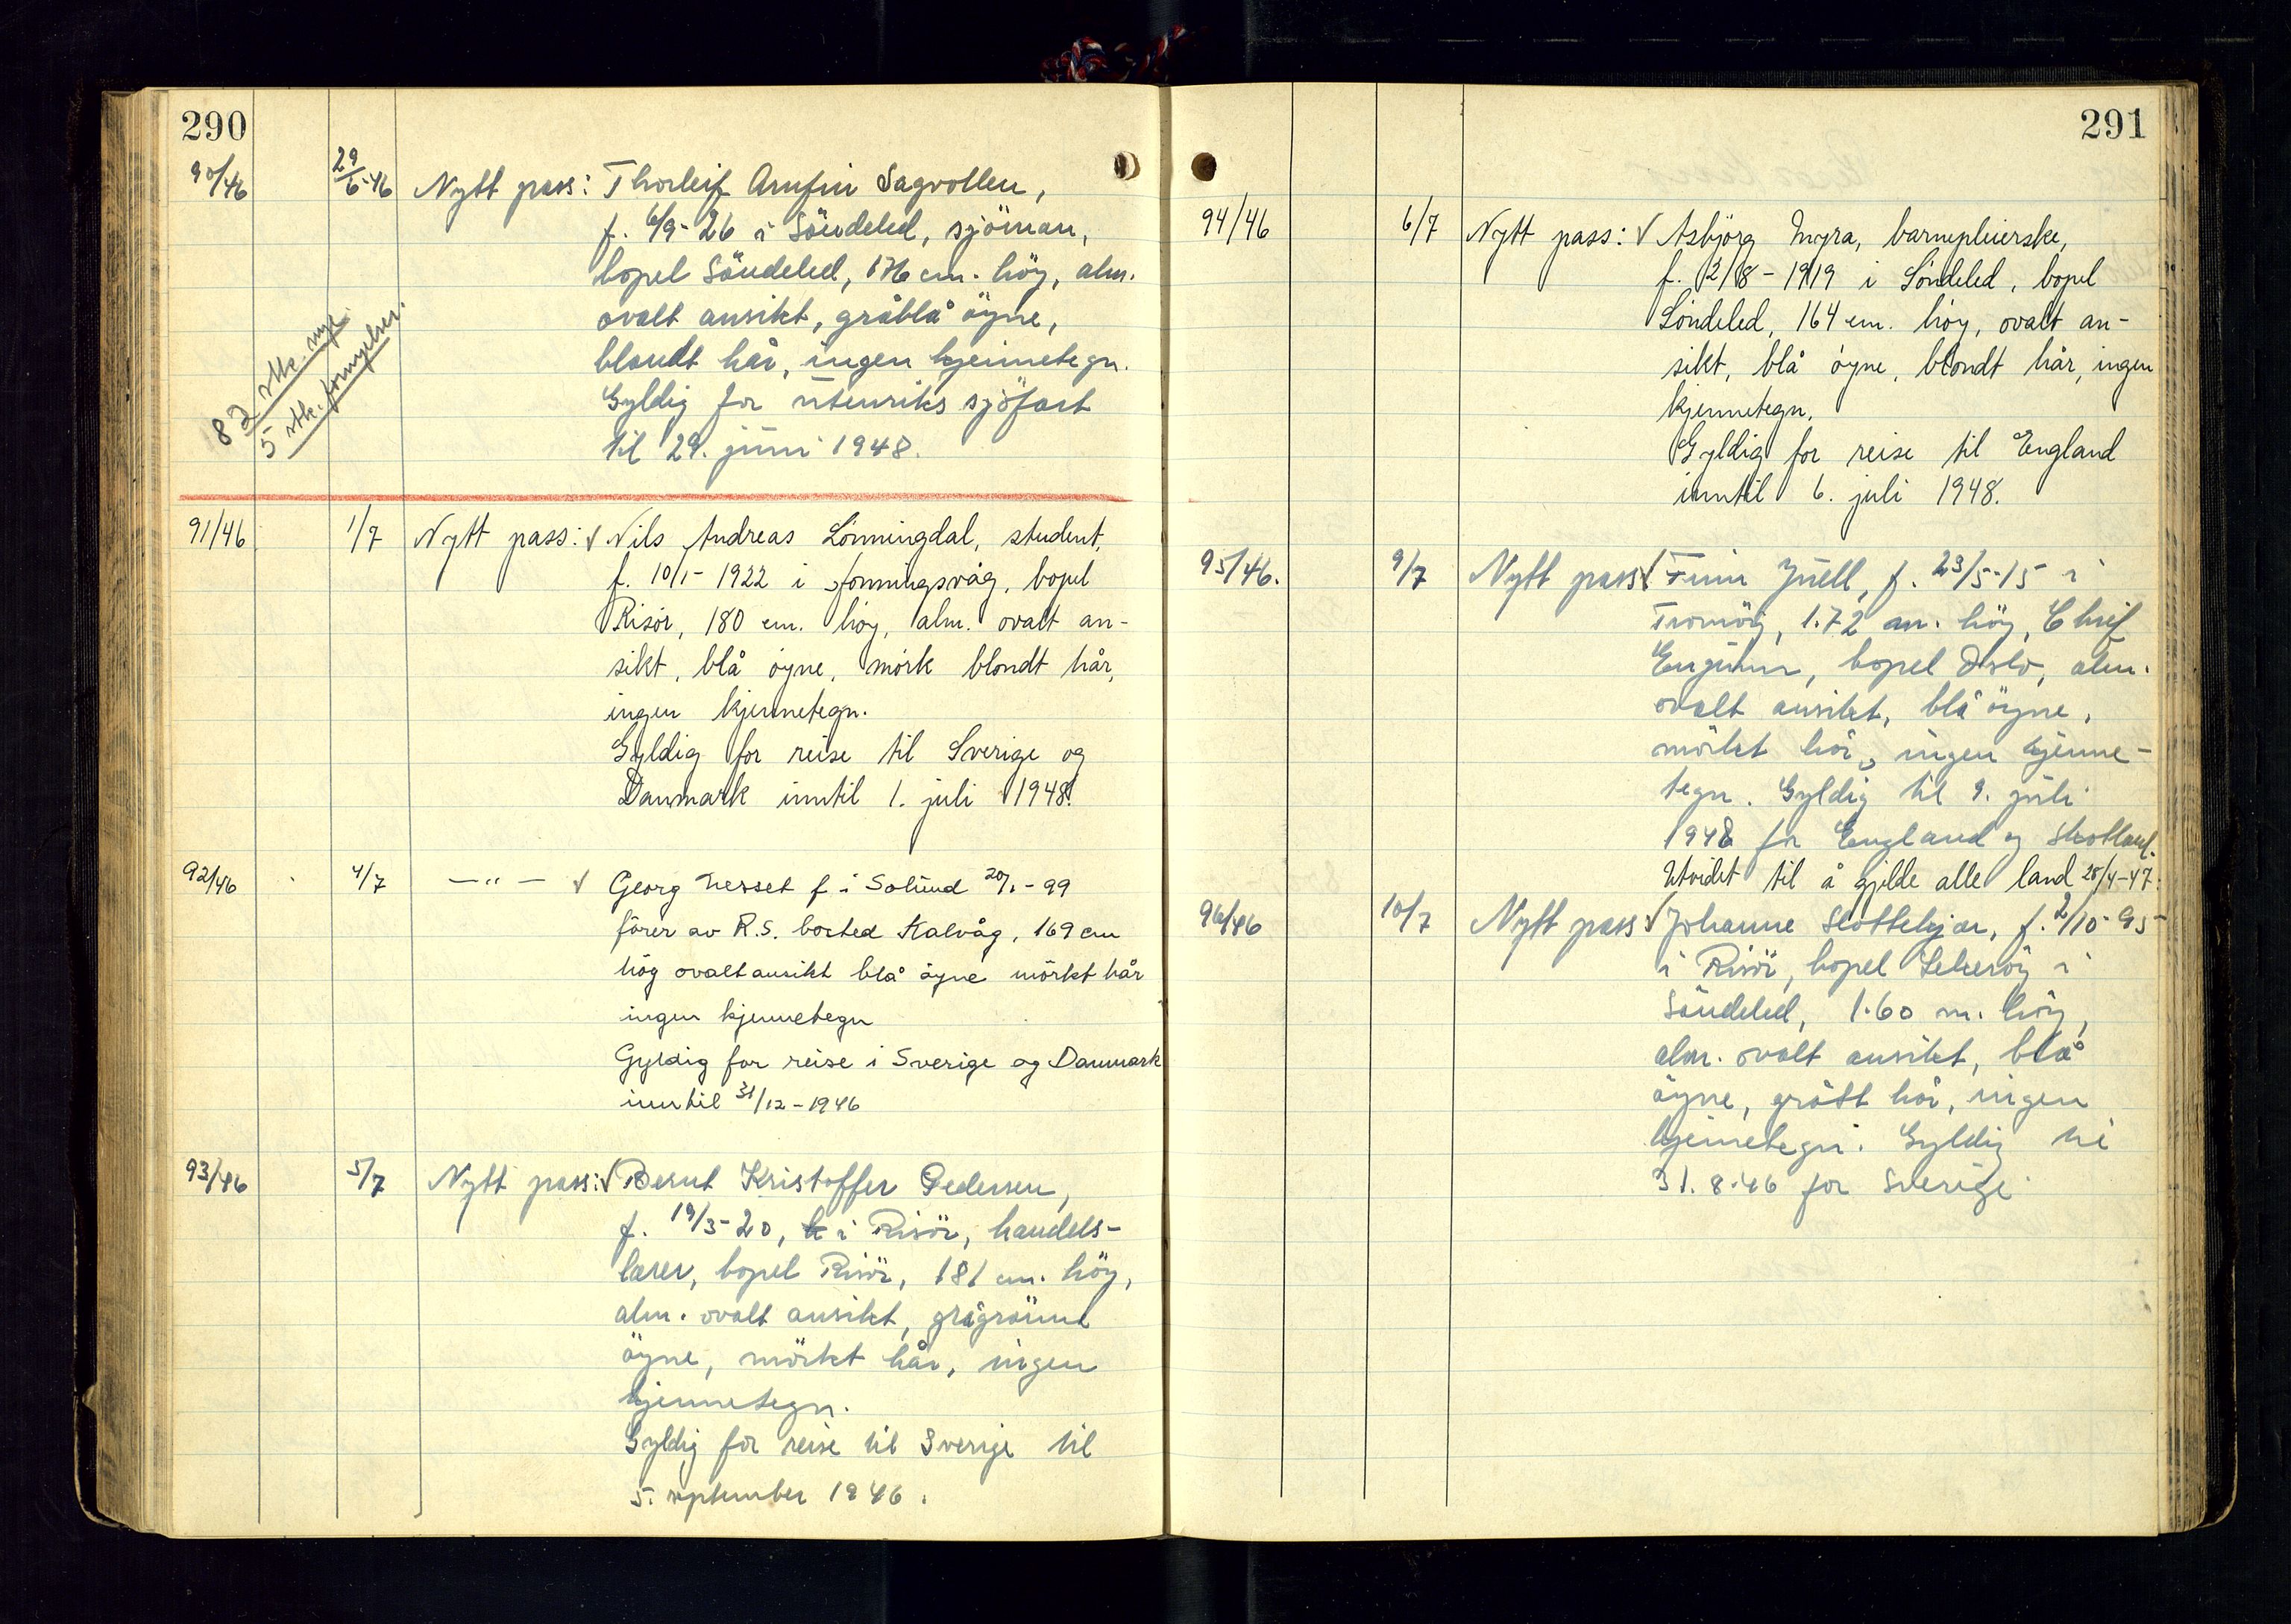 290
90/46 29/6-46 Nytt pass: Thorleif Arnfin Sagvollen,
f. 6/9-26 i Söndeled, sjöman,
bopel Söndeled, 176 cm. höy, alm.
ovalt ansikt, gråblå öyne,
blondt hår, ingen kjennetegn.
Gyldig for utenriks sjöfart
til 29. juni 1948.
82 stk. nye.
5 stk. fornyelser.
91/46 1/7 Nytt pass: √ Nils Andreas Lönningdal, student,
f. 10/1-1922 i Honningsvåg, bopel
Risör, 180 cm. höy, alm. ovalt an-
sikt, blå öyne, mörk blondt hår,
ingen kjennetegn.
Gyldig for reise til Sverige og
Danmark inntil 1. juli 1948.
92/46 4/7 —"— √ Georg Nesset f i Solund 20/1-99
förer av R.S. bosted Kalvåg, 169 cm
hög ovalt ansikt blå öyne mörkt hår
ingen kjennetegn
Gyldig for reise i Sverige og Danmark
inntil 31/12-1946
93/46 5/7 Nytt pass: √ Bernt Kristoffer Pedersen,
f. 19/3-20, i Risör, handels-
lærer, bopel Risör, 181 cm. höy,
alm. ovalt ansikt, grågrönne
öyne, mörkt hår, ingen
kjennetegn.
Gyldig for reise til Sverige til
5. september 1946.
291
94/46 6/7 Nytt pass: √ Asbjörg Myra, barnepleierske,
f. 2/8-1919 i Söndeled, bopel
Söndeled, 164 cm. höy, ovalt an-
sikt, blå öyne, blondt hår, ingen
kjennetegn.
Gyldig for reise til England
inntil 6. juli 1948.
95/46. 9/7 Nytt pass √ Finn Juell, f. 23/5-15 i
Tromöy, 1.72 cm. höy, Chief
Engineer, bopel Oslo, alm.
ovalt ansikt, blå öyne,
mörkt hår, ingen kjenne-
tegn. Gyldig til 9. juli
1948 for England og Skotland.
Utvidet til å gjelde alle land 25/4-47.
96/46 10/7 Nytt pass √ Johanne Slottekjær, f. 2/10-95
i Risör, bopel
Söndeled, 1.60 m. höy,
alm. ovalt ansikt, blå
öyne, grått hår, ingen
kjennetegn. Gyldig til
31.8.46 for Sverige